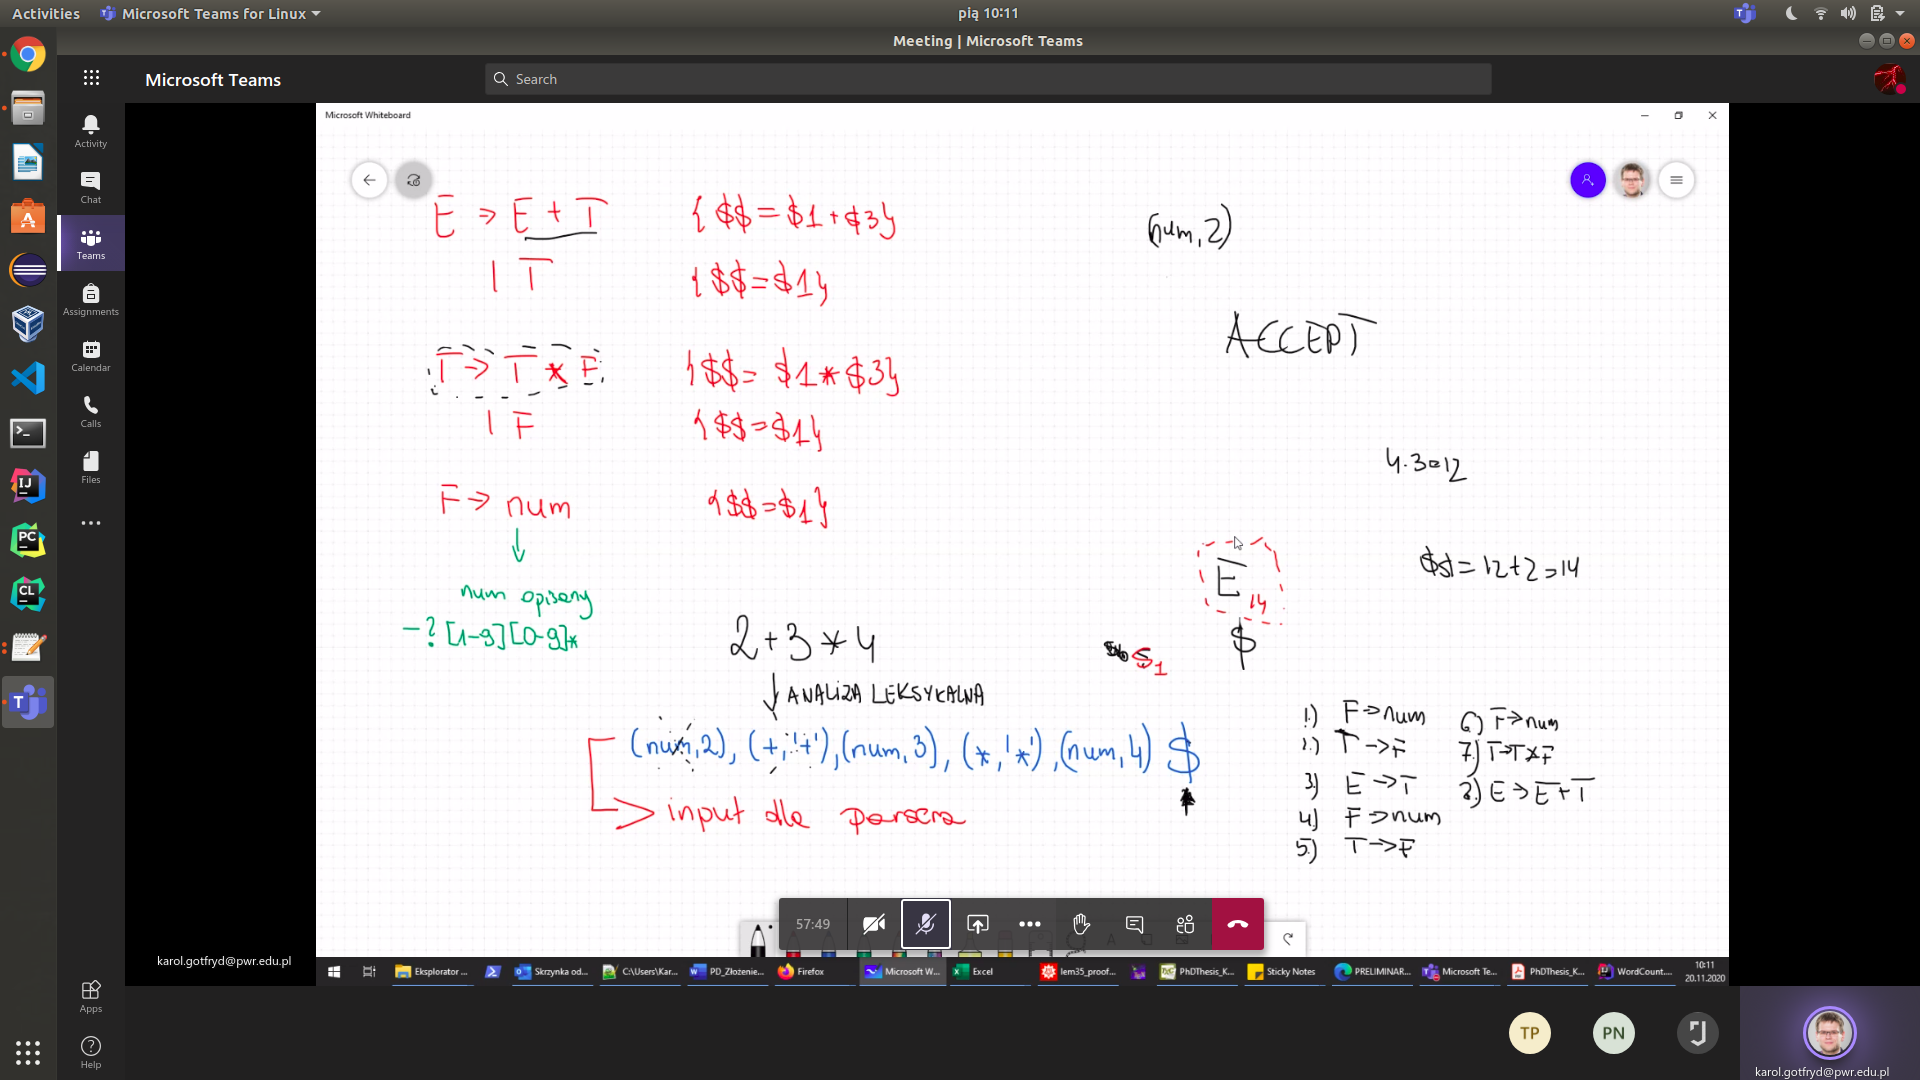 Activities Microsoft Teams for Linux pią 10:11
Meeting | Microsoft Teams
Microsoft Teams Search
Activity
Chat
Teams
Assignments
Calendar
Calls
Files
Apps
Help
Microsoft Whiteboard
E → E + T {$$ = $1 + $3}
| T {$$ = $1}
T → T * F {$$ = $1 * $3}
| F {$$ = $1}
F → num {$$ = $1}
num opisany
-? [1-9][0-9]*
(num, 2)
ACCEPT
4.3=12
$$ = 12+2=14
E 14
$
$1
2 + 3 * 4
ANALIZA LEKSYKALNA
(num,2), (+,'+'), (num,3), (*,'*'), (num,4) $
input dla parsera
1.) F → num
2.) T → F
3.) E → T
4.) F → num
5.) T → F
6.) F → num
7.) T → T * F
8.) E → E + T
57:49
karol.gotfryd@pwr.edu.pl
Eksplorator ...
Skrzynka od...
C:\Users\Kar...
PD_Złożenie...
Firefox
Microsoft W...
Excel
lem35_proof...
PhDThesis_K...
Sticky Notes
PRELIMINAR...
Microsoft Te...
PhDThesis_K...
WordCount....
10:11
20.11.2020
TP PN
karol.gotfryd@pwr.edu.pl